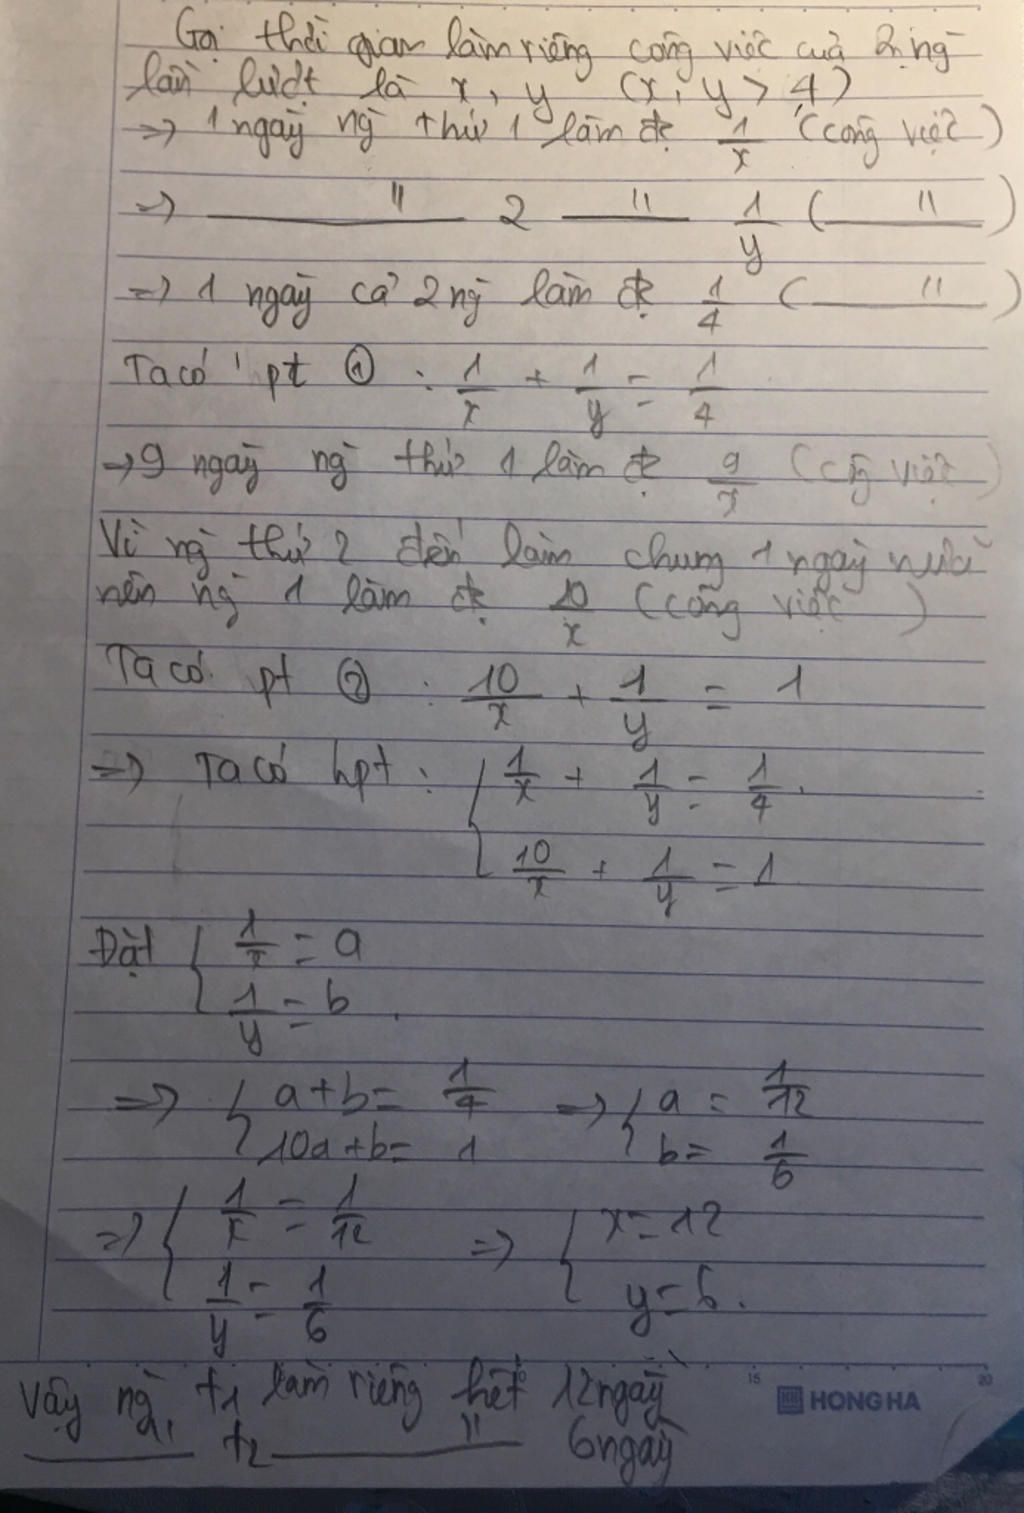 Gọi thời gian làm riêng công việc của 2 ng
lần lượt là x, y (x, y > 4)
=> 1 ngày ng thứ 1 làm đc 1/x (công việc)
=> —— " —— 2 —— " —— 1/y (—— " ——)
=> 1 ngày cả 2 ng làm đc 1/4 (—— " ——)
Ta có pt ① : 1/x + 1/y = 1/4
→ 9 ngày ng thứ 1 làm đc 9/x (công việc)
Vì ng thứ 2 đến làm chung 1 ngày nữa
nên ng 1 làm đc 10/x (công việc)
Ta có pt ② : 10/x + 1/y = 1
=> Ta có hpt : { 1/x + 1/y = 1/4
10/x + 1/y = 1
Đặt { 1/x = a
1/y = b
=> { a + b = 1/4 => { a = 1/12
10a + b = 1 b = 1/6
=> { 1/x = 1/12 => { x = 12
1/y = 1/6 y = 6.
Vậy ng t1 làm riêng hết 12 ngày
—— t2 —— " —— 6 ngày
15 20
HONG HA